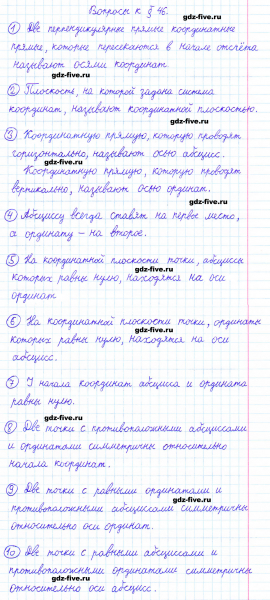 Вопросы к § 46.
gdz-free.ru
1) Две перпендикулярные прямые координатные
прямые, которые пересекаются в начале отсчёта
называют осями координат.
gdz-free.ru
2) Плоскость, на которой задана система
gdz-free.ru
координат, называют координатной плоскостью.
gdz-free.ru
3) Координатную прямую, которую проводят
горизонтально, называют осью абсцисс.
gdz-free.ru
Координатную прямую, которую проводят
вертикально, называют осью ординат.
gdz-free.ru
4) Абсциссу всегда ставят на первое место,
а ординату – на второе.
gdz-free.ru
5) На координатной плоскости точки, абсциссы
которых равны нулю, находятся на оси
gdz-free.ru
ординат.
6) На координатной плоскости точки, ординаты
которых равны нулю, находятся на оси
абсцисс.
gdz-free.ru
7) У начала координат абсцисса и ордината
равны нулю.
gdz-free.ru
8) Две точки с противоположными абсциссами
и ординатами симметричны относительно
gdz-free.ru
начала координат.
9) Две точки с равными ординатами и
gdz-free.ru
противоположными абсциссами симметричны
относительно оси ординат.
gdz-free.ru
10) Две точки с равными абсциссами и
противоположными ординатами симметричны
gdz-free.ru
относительно оси абсцисс.